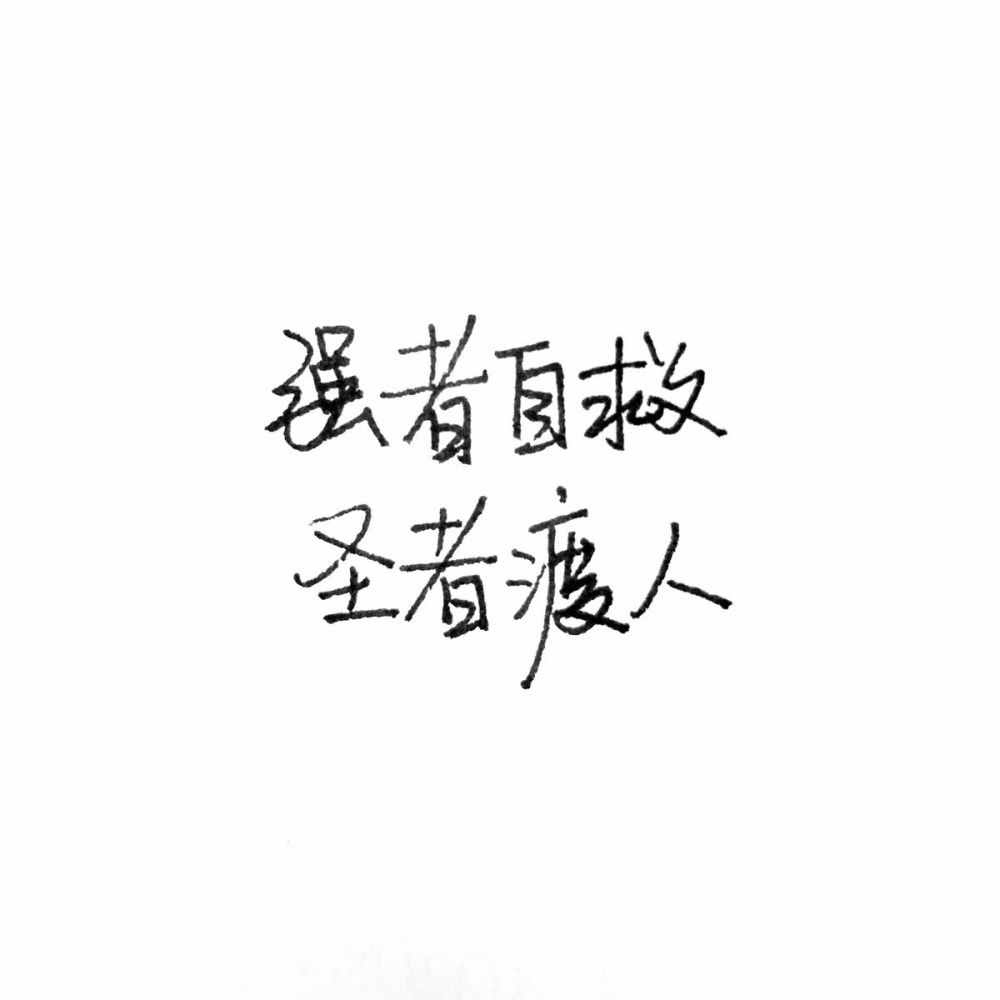 强者自救
圣者渡人